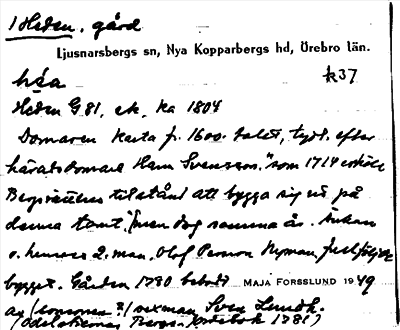 1 Heden, gård
Ljusnarsbergs sn, Nya Kopparbergs hd, Örebro län.
héa k37
Heden G 81, ek, ka 1804
Domaren karta fr. 1600-talet, tyd. efter
häradsdomare Hans Svensson, "som 1714 erhöll
Bergsrättens tillstånd att bygga sig ut på
denna tomt", men dog samma år. Änkan
o. hennes 2. man, Olof Persson Nyman,
bygget. Gården 1790 bebodd MAJA FORSSLUND 1949
av sexman Sven Lundh.
1781)